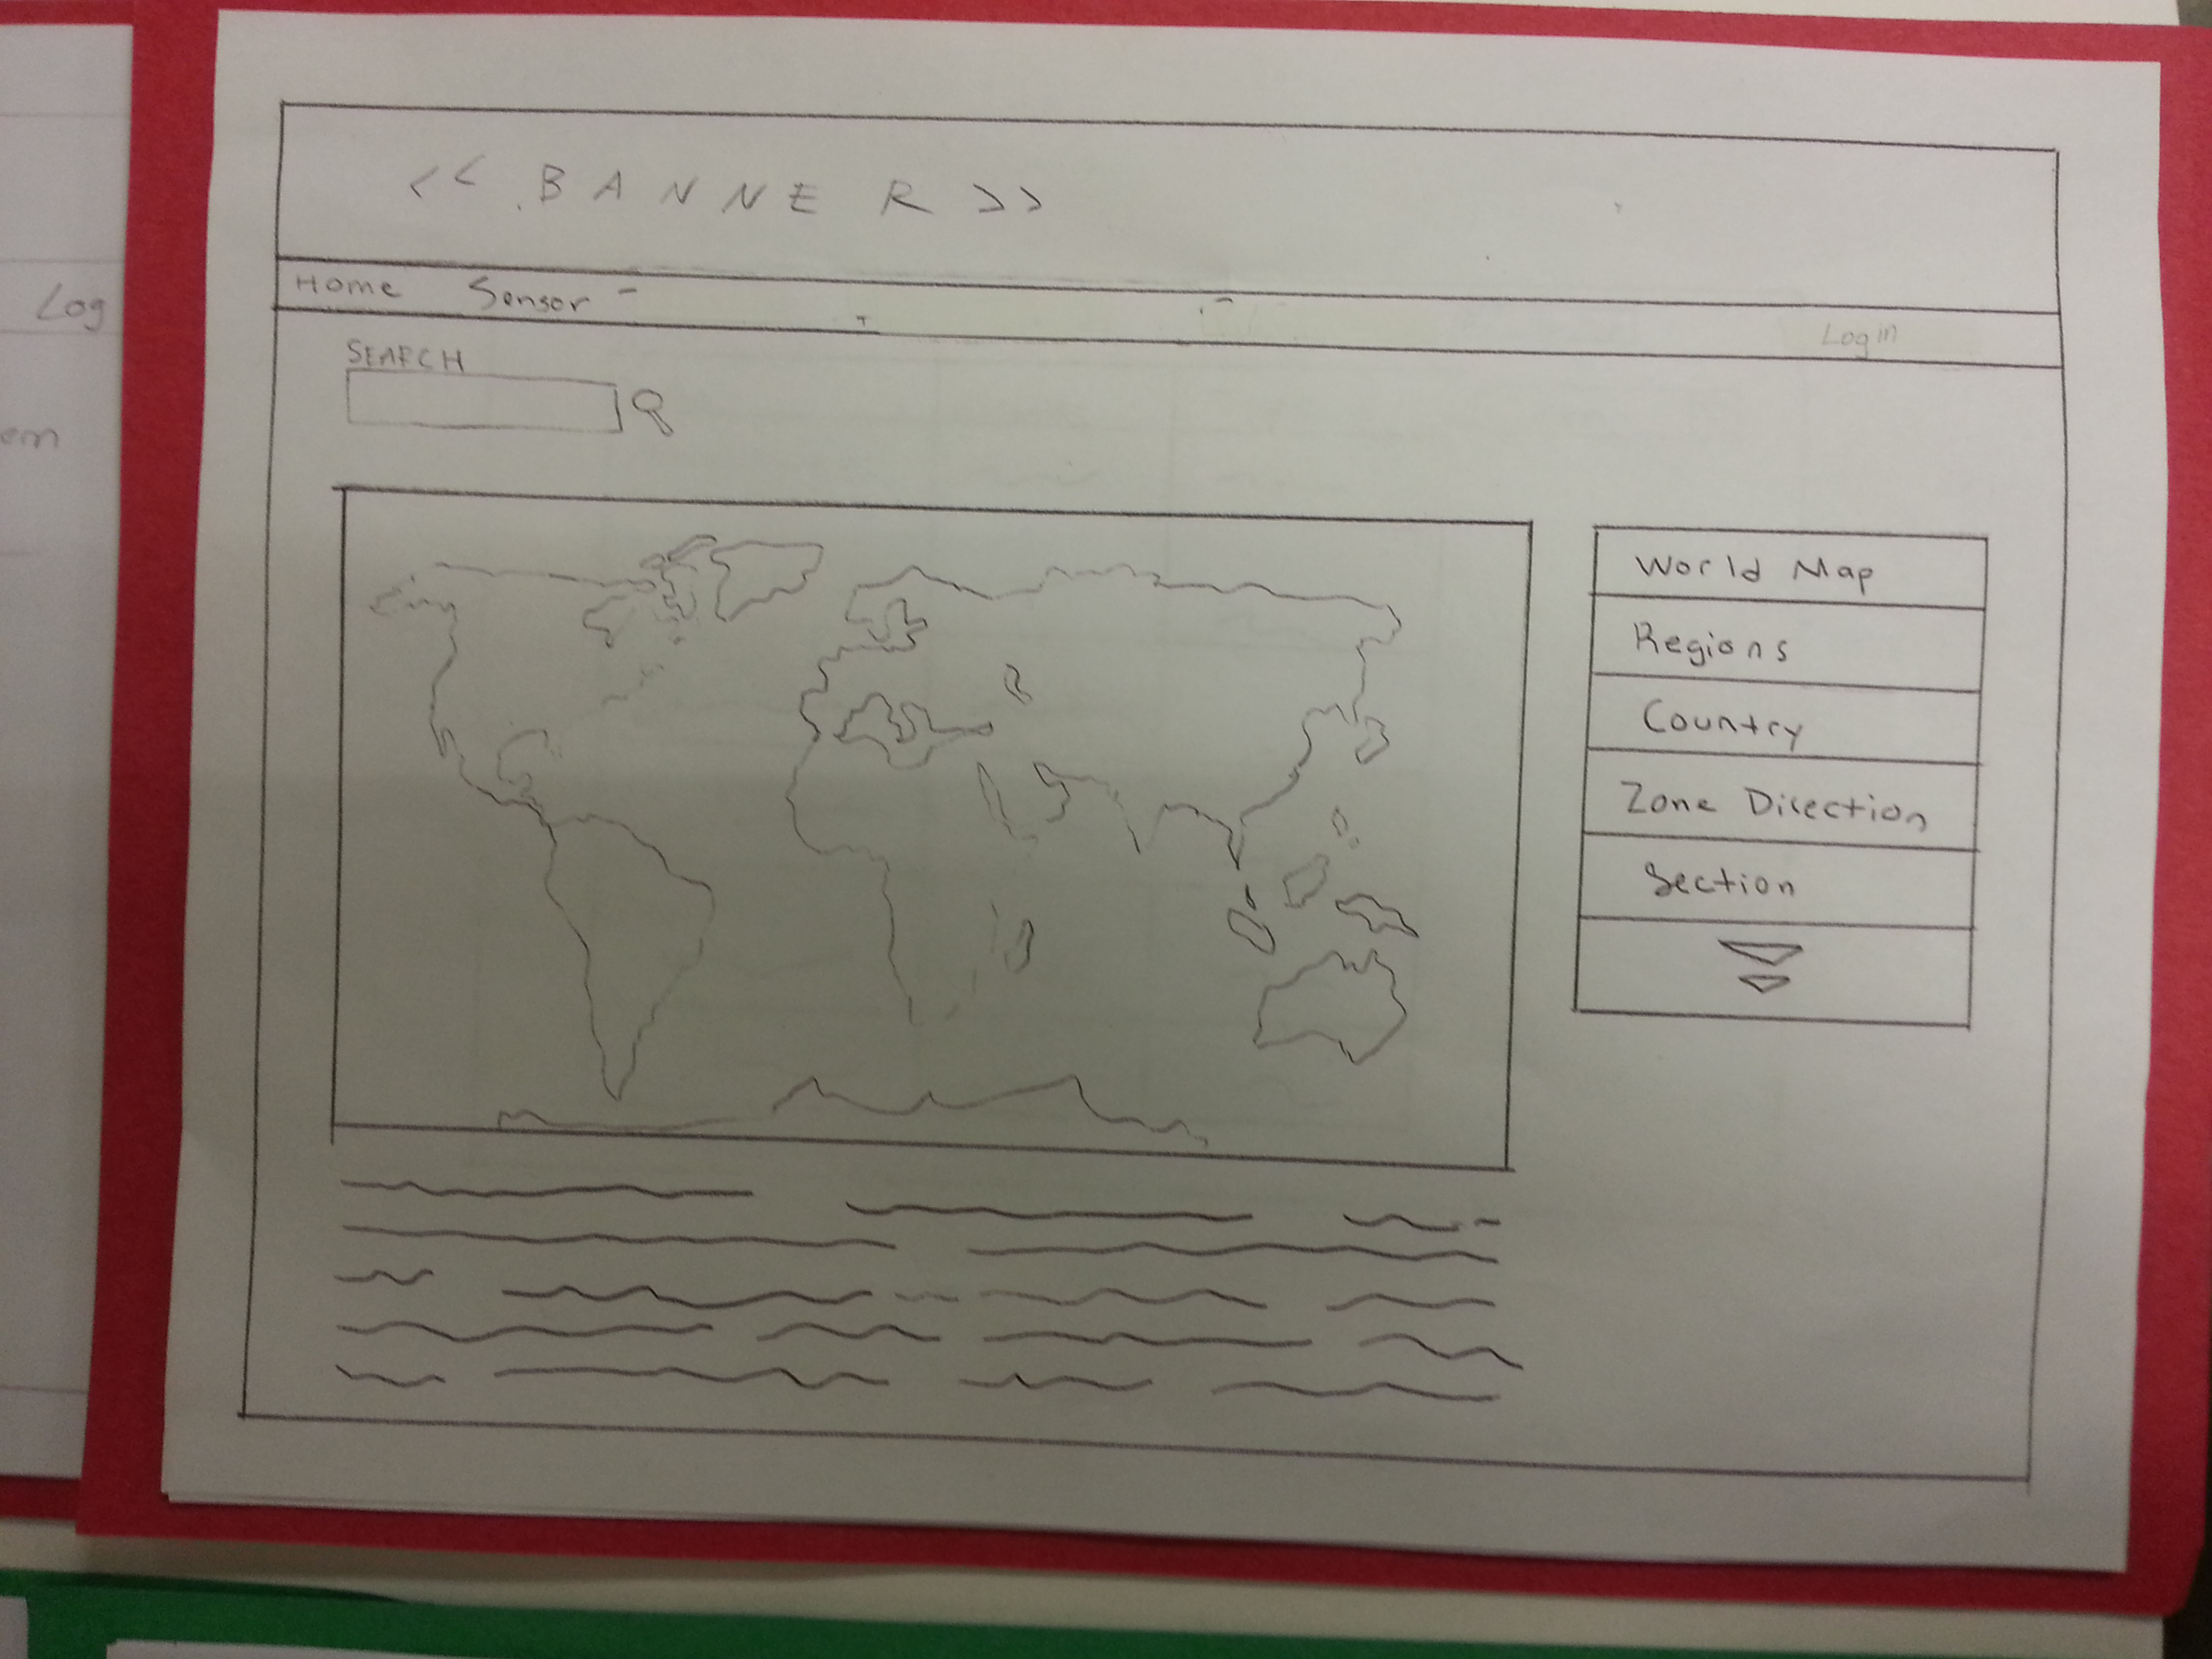 << BANNER >>
Home Sensor
Login
SEARCH
World Map
Regions
Country
Zone Direction
Section
Log
em